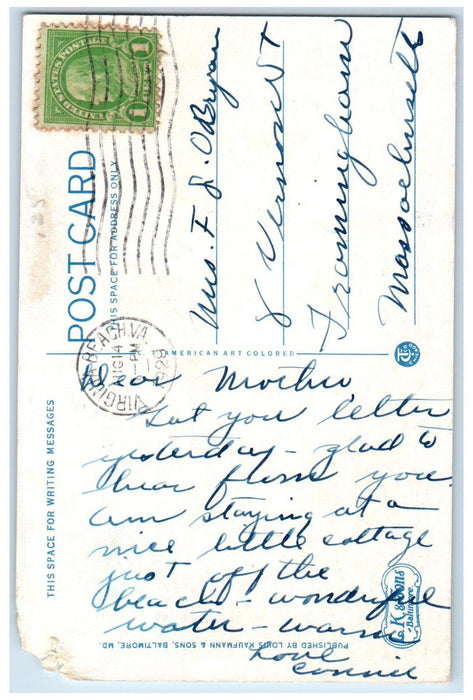 UNITED STATES POSTAGE
1 1
POST CARD
THIS SPACE FOR ADDRESS ONLY
Mrs. F J. O'Bryan
8 Vernon St
Framingham
Massachusetts
VIRGINIA BEACH VA.
AUG 14
1929
AMERICAN ART COLORED
THIS SPACE FOR WRITING MESSAGES
Dear Mother
Got you letter
yesterday - glad to
hear from you
am staying at a
nice little cottage
just off the
beach - wonderful
water - warm
Love
Connie
PUBLISHED BY LOUIS KAUFMANN & SONS, BALTIMORE, MD.
L K & Sons
Baltimore